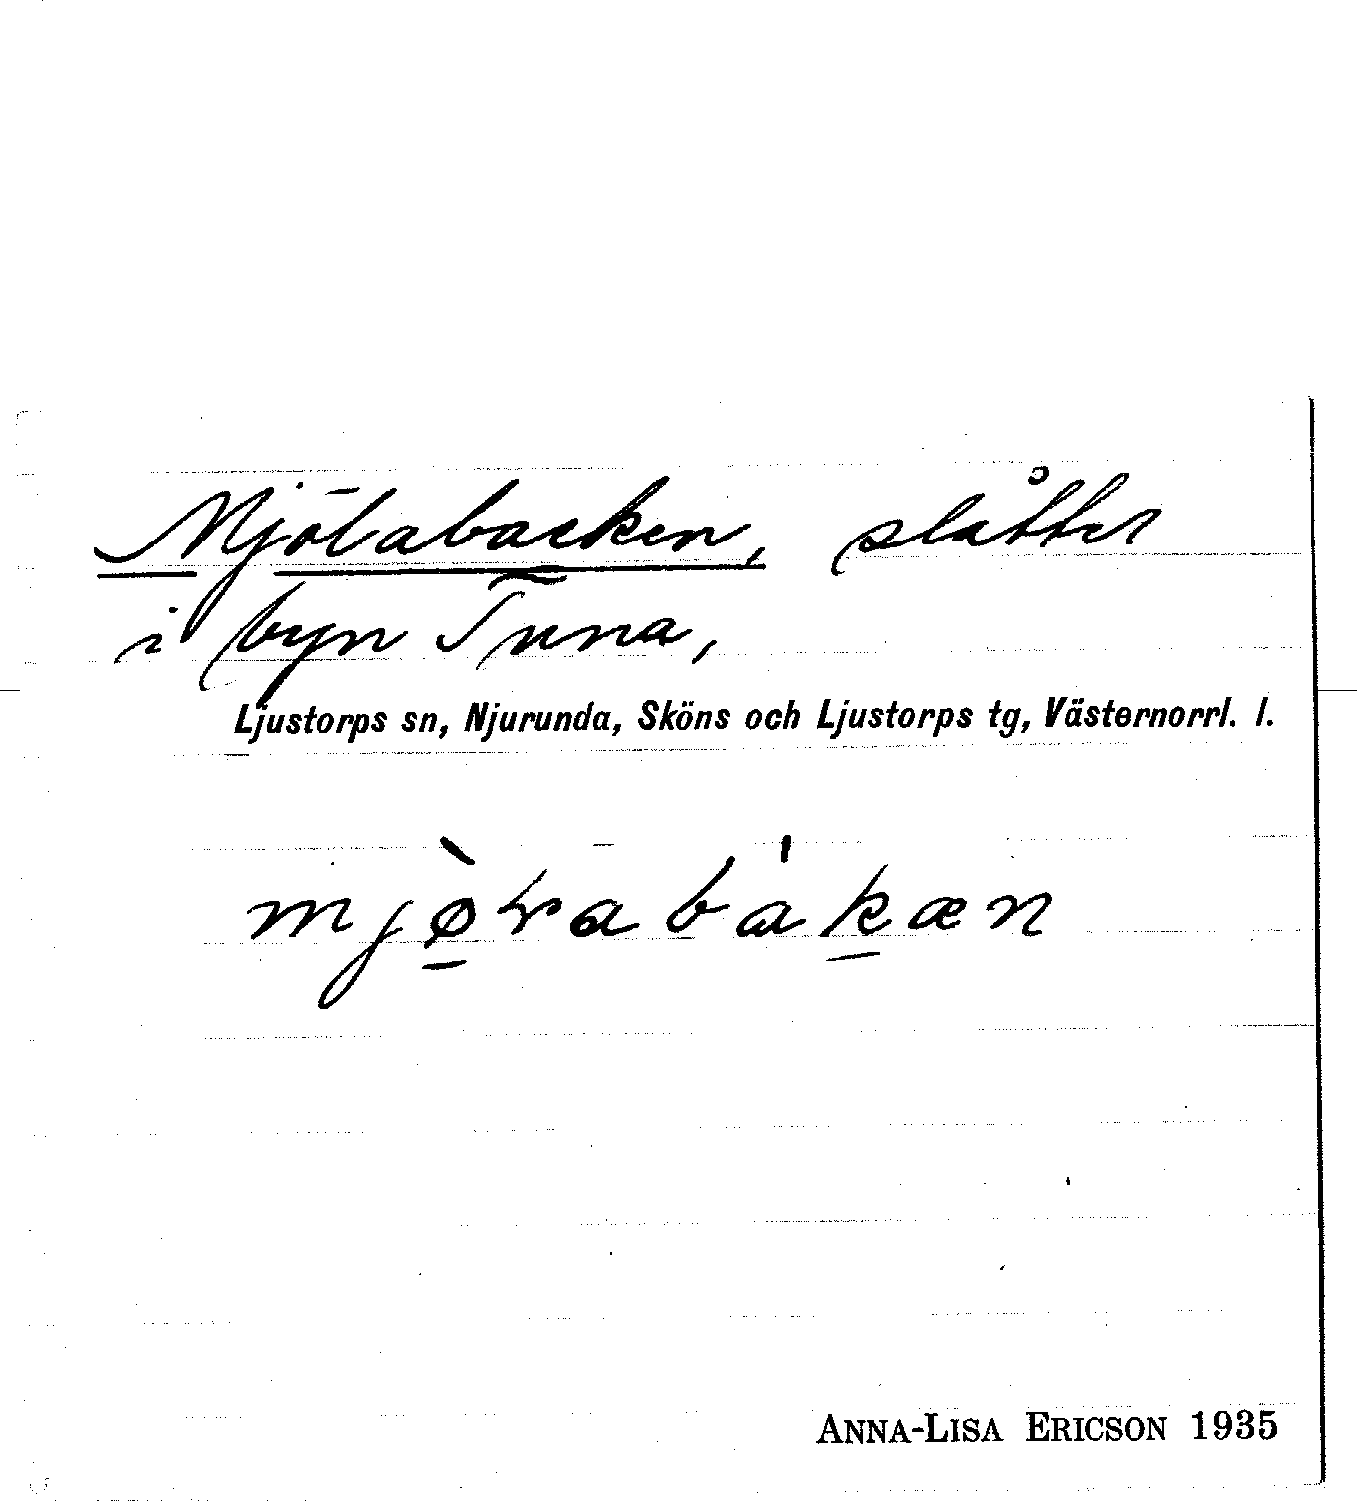 Mjölabacken, slåtter
i byn Tuna,
Ljustorps sn, Njurunda, Sköns och Ljustorps tg, Västernorrl. l.
ANNA-LISA ERICSON 1935